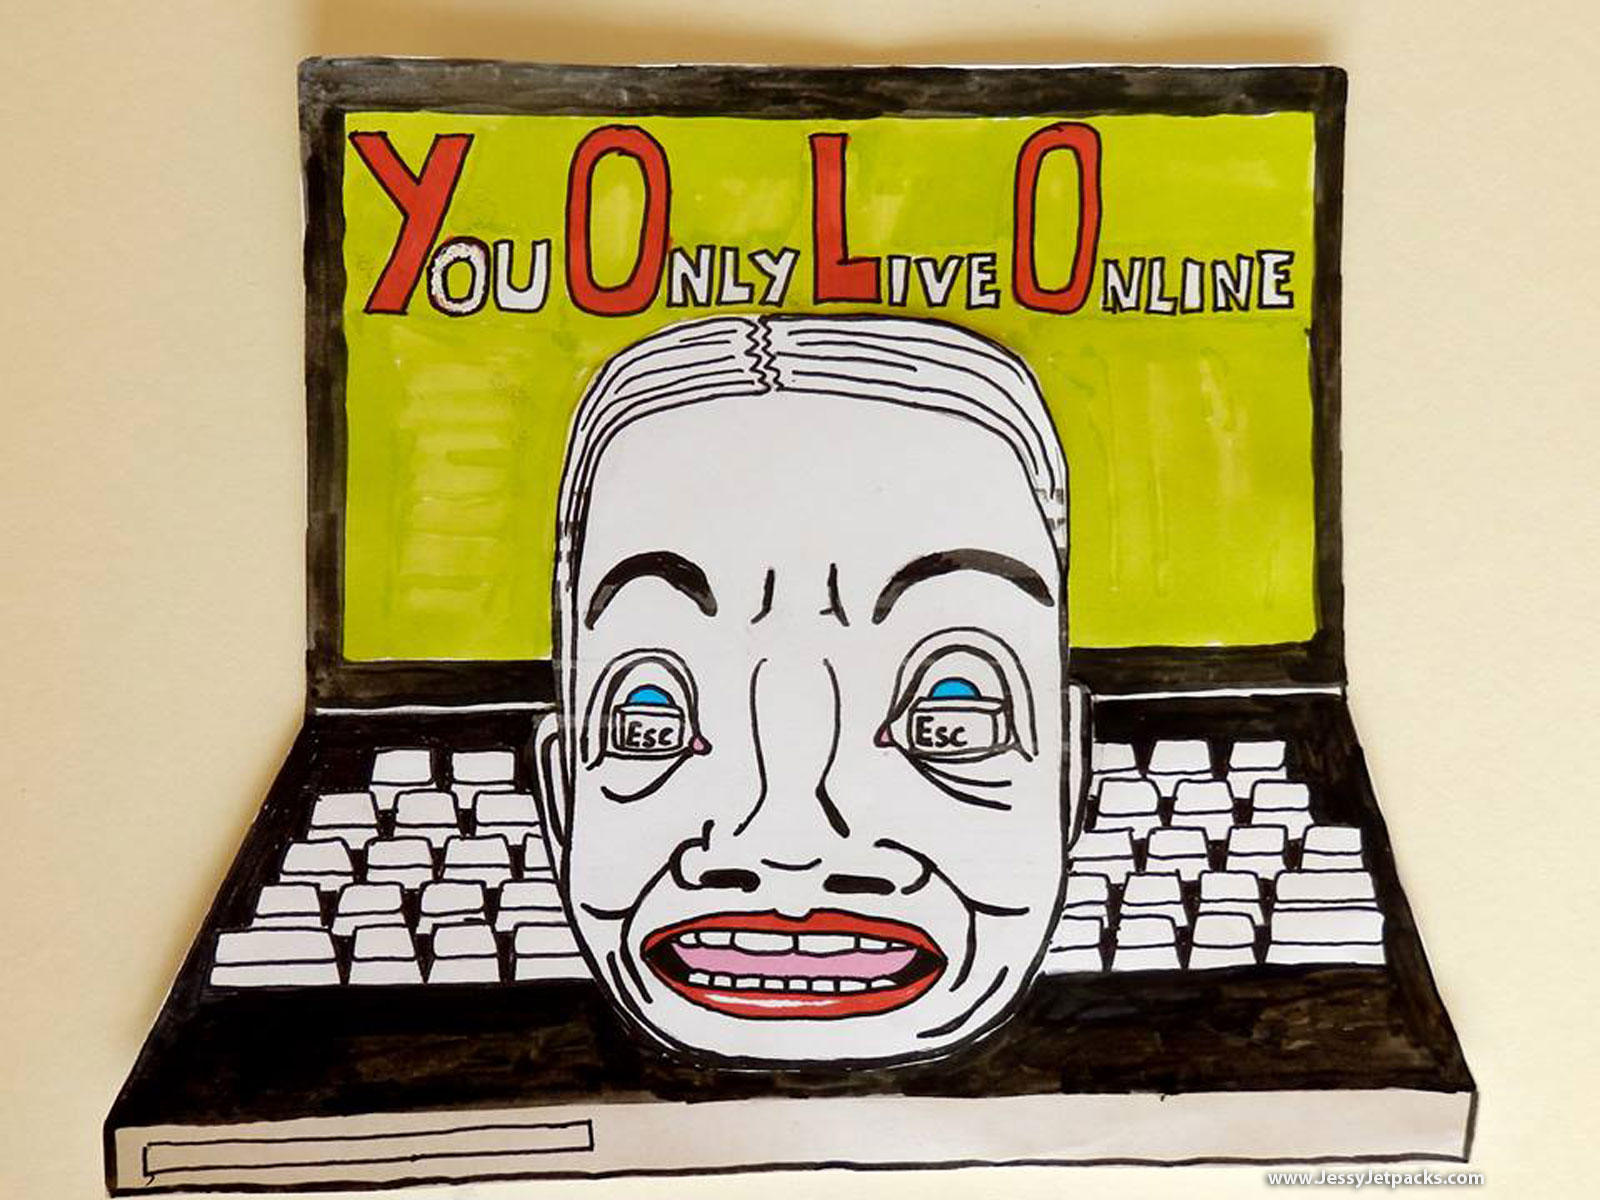 You Only Live Online
Esc Esc
www.JessyJetpacks.com